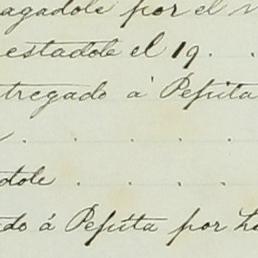 agadole por el
estadole el 19 . .
tregado á Pepita
. . . .
dole . . . .
do á Pepita por